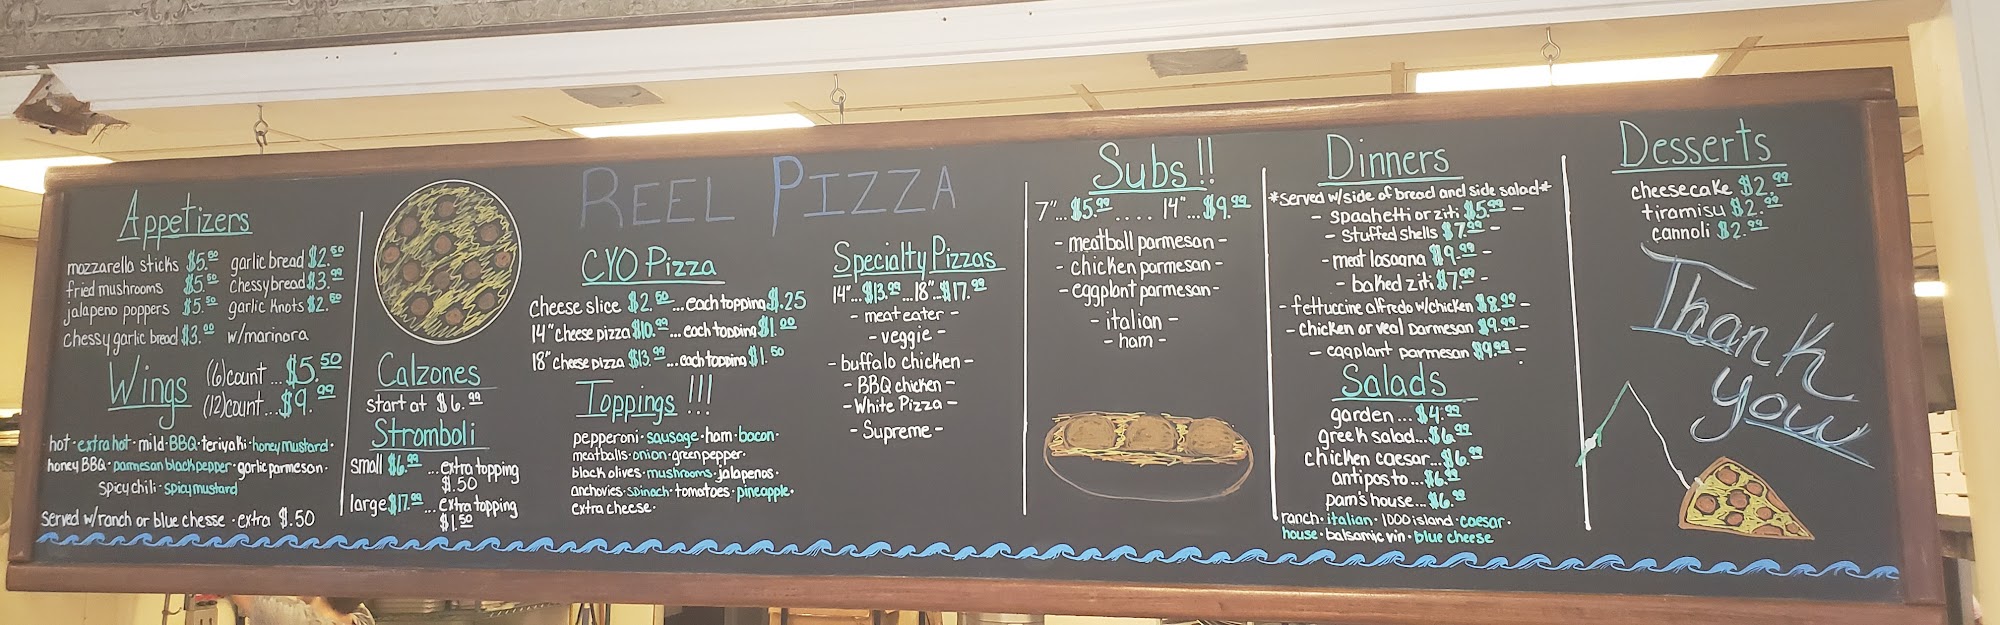 Appetizers
mozzarella sticks $5.50 garlic bread $2.50
fried mushrooms $5.50 chessy bread $3.99
jalapeno poppers $5.50 garlic knots $2.50
chessy garlic bread $3.99 w/marinara
Wings (6)count ... $5.50
(12)count... $9.99
hot · extra hot · mild · BBQ · teriyaki · honey mustard ·
honey BBQ · parmesan black pepper · garlic parmesan ·
spicy chili · spicy mustard
served w/ranch or blue chesse · extra $.50
Calzones
start at $6.99
Stromboli
small $6.99 ...extra topping
$.50
large $17.99 ... extra topping
$1.50
REEL PIZZA
CYO Pizza
Cheese slice $2.50 ...each topping $.25
14" cheese pizza $10.99 ...each topping $1.00
18" cheese pizza $13.99 ...each topping $1.50
Toppings !!!
pepperoni · sausage · ham · bacon ·
meatballs · onion · green pepper ·
black olives · mushrooms · jalapenos ·
anchovies · spinach · tomatoes · pineapple ·
extra cheese ·
Specialty Pizzas
14"...$13.99...18"...$17.99
- meat eater -
- veggie -
- buffalo chicken -
- BBQ chicken -
- White Pizza -
- Supreme -
Subs!!
7"...$5.99 .... 14"...$9.99
- meatball parmesan -
- chicken parmesan -
- eggplant parmesan -
- italian -
- ham -
Dinners
*served w/side of bread and side salad*
- spaghetti or ziti $5.99 -
- stuffed shells $7.99 -
- meat lasagna $9.99 -
- baked ziti $7.99 -
- fettuccine alfredo w/chicken $8.99 -
- chicken or veal parmesan $9.99 -
- eggplant parmesan $9.99 -
Salads
garden... $4.99
greek salad...$6.99
chicken caesar...$6.99
antipasto...$6.99
pam's house...$6.99
ranch · italian · 1000 island · caesar ·
house · balsamic vin · blue cheese
Desserts
cheesecake $2.99
tiramisu $2.99
cannoli $2.99
Thank
you